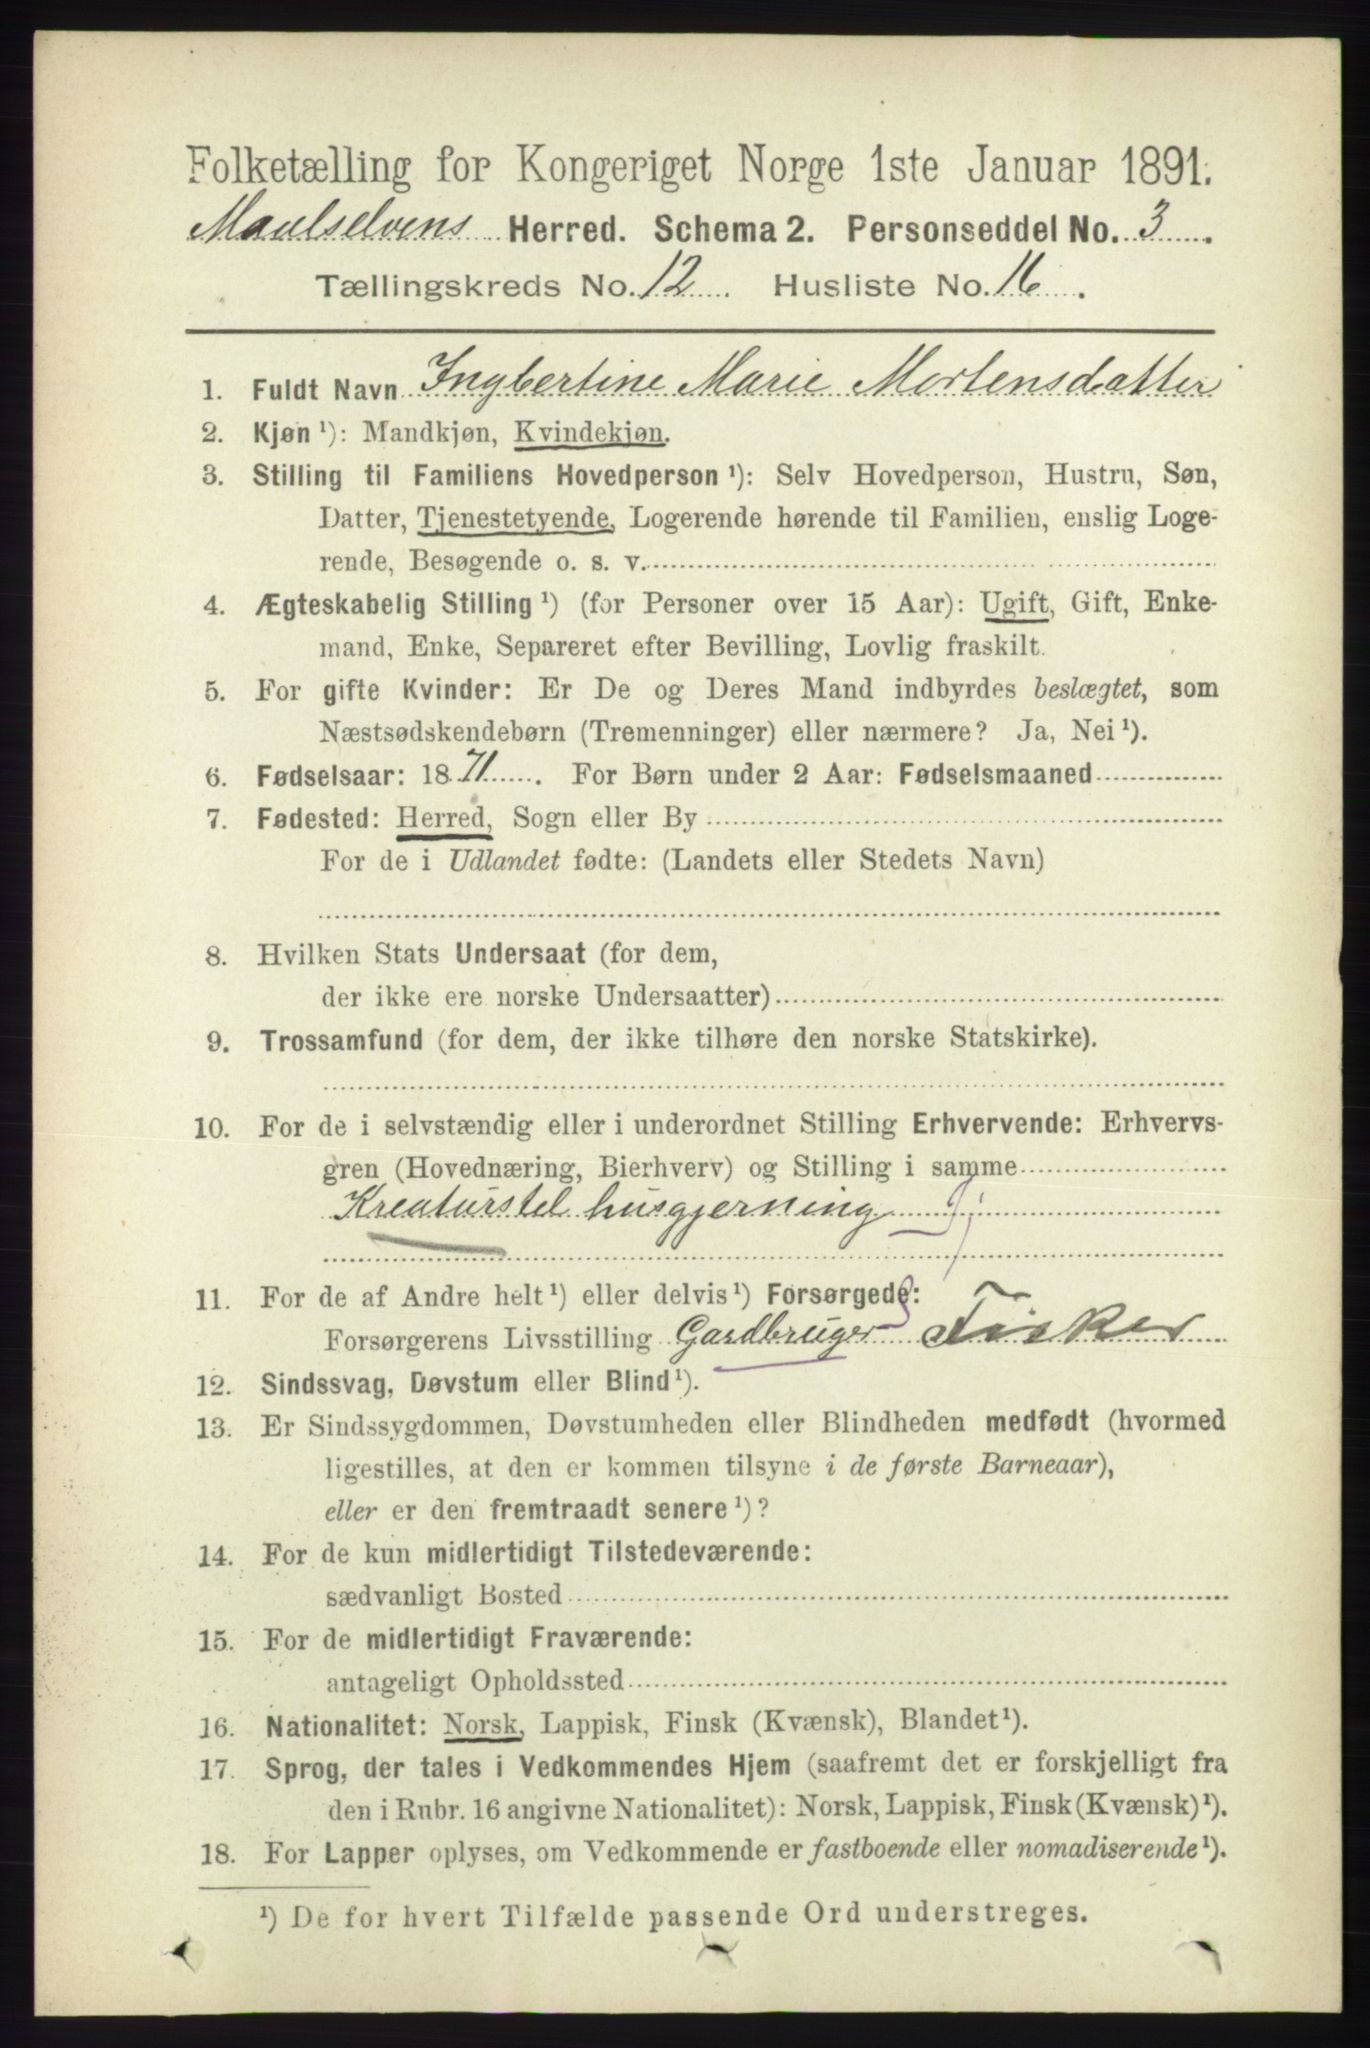 Folketælling for Kongeriget Norge 1ste Januar 1891.
Maalselvens Herred. Schema 2. Personseddel No. 3.
Tællingskreds No. 12. Husliste No. 16.
1. Fuldt Navn Ingbertine Marie Mortensdatter
2. Kjøn ¹): Mandkjøn, Kvindekjøn.
3. Stilling til Familiens Hovedperson ¹): Selv Hovedperson, Hustru, Søn,
Datter, Tjenestetyende, Logerende hørende til Familien, enslig Loge-
rende, Besøgende o. s. v.
4. Ægteskabelig Stilling ¹) (for Personer over 15 Aar): Ugift, Gift, Enke-
mand, Enke, Separeret efter Bevilling, Lovlig fraskilt.
5. For gifte Kvinder: Er De og Deres Mand indbyrdes beslægtet, som
Næstsødskendebørn (Tremenninger) eller nærmere? Ja, Nei ¹).
6. Fødselsaar: 1871. For Børn under 2 Aar: Fødselsmaaned
7. Fødested: Herred, Sogn eller By
For de i Udlandet fødte: (Landets eller Stedets Navn)
8. Hvilken Stats Undersaat (for dem,
der ikke ere norske Undersaatter)
9. Trossamfund (for dem, der ikke tilhøre den norske Statskirke).
10. For de i selvstændig eller i underordnet Stilling Erhvervende: Erhvervs-
gren (Hovednæring, Bierhverv) og Stilling i samme
Kreaturstel husgjerning
11. For de af Andre helt ¹) eller delvis ¹) Forsørgede:
Forsørgerens Livsstilling Gardbruger Fisker
12. Sindssvag, Døvstum eller Blind ¹).
13. Er Sindssygdommen, Døvstumheden eller Blindheden medfødt (hvormed
ligestilles, at den er kommen tilsyne i de første Barneaar),
eller er den fremtraadt senere ¹)?
14. For de kun midlertidigt Tilstedeværende:
sædvanligt Bosted
15. For de midlertidigt Fraværende:
antageligt Opholdssted
16. Nationalitet: Norsk, Lappisk, Finsk (Kvænsk), Blandet ¹).
17. Sprog, der tales i Vedkommendes Hjem (saafremt det er forskjelligt fra
den i Rubr. 16 angivne Nationalitet): Norsk, Lappisk, Finsk (Kvænsk) ¹).
18. For Lapper oplyses, om Vedkommende er fastboende eller nomadiserende ¹).
¹) De for hvert Tilfælde passende Ord understreges.